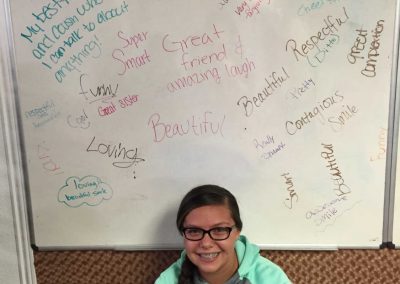 My best friend
and cousin who
I can talk to about
anything!
Super
Smart
Great
friend &
amazing laugh
Respectful
(Ditto)
great
compassion
funny
Great sister
Cool
Beautiful
Pretty
Contagious
Smile
Beautiful
Loving
Really
Smart
Beautiful
Funny
loving &
beautiful smile
awesome
smile